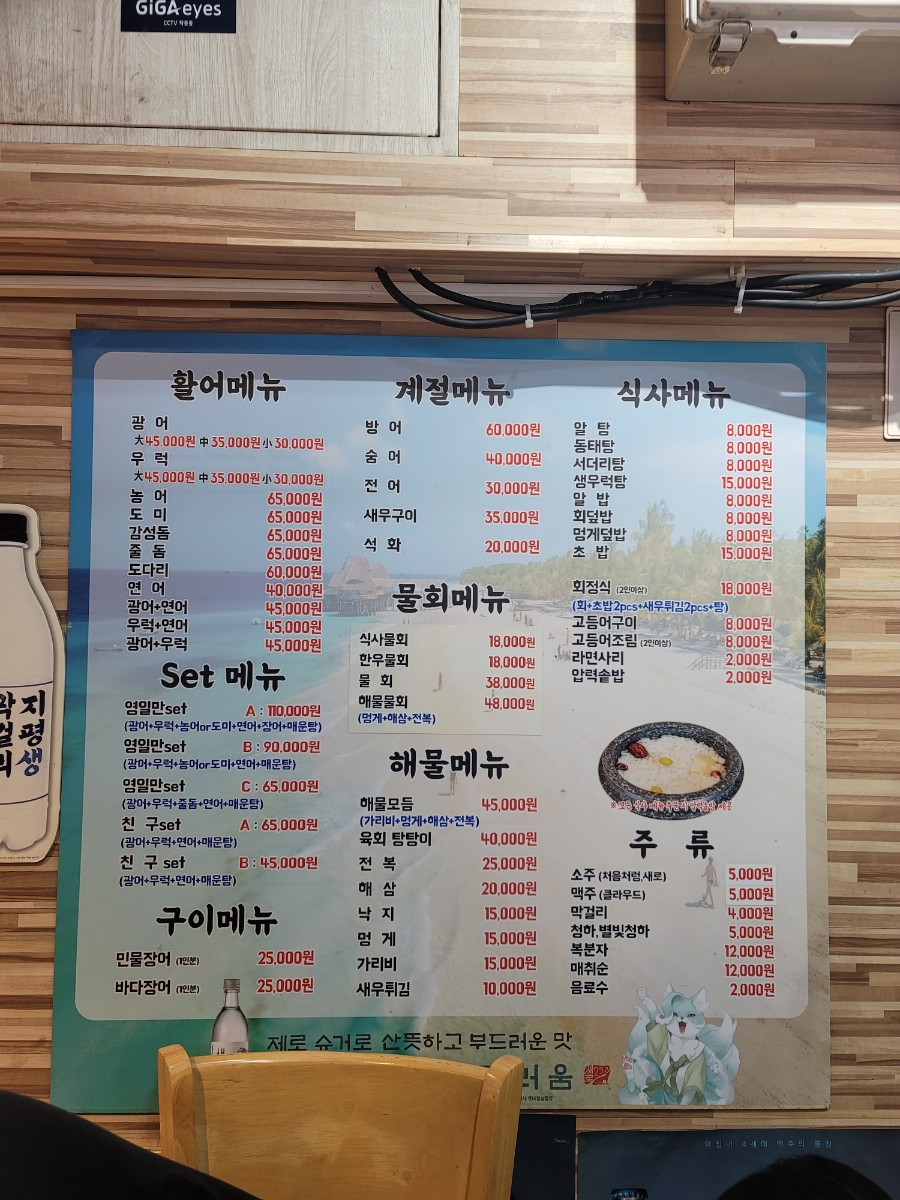 GiGAeyes
CCTV 작동중
활어메뉴
광 어
大45,000원 中35,000원 小30,000원
우 럭
大45,000원 中35,000원 小30,000원
농 어 65,000원
도 미 65,000원
감성돔 65,000원
줄 돔 65,000원
도다리 60,000원
연 어 40,000원
광어+연어 45,000원
우럭+연어 45,000원
광어+우럭 45,000원
Set 메뉴
영일만set A : 110,000원
(광어+우럭+농어or도미+연어+장어+매운탕)
영일만set B : 90,000원
(광어+우럭+농어or도미+연어+매운탕)
영일만set C : 65,000원
(광어+우럭+줄돔+연어+매운탕)
친 구set A : 65,000원
(광어+우럭+연어+매운탕)
친 구 set B : 45,000원
(광어+우럭+연어+매운탕)
구이메뉴
민물장어 (1인분) 25,000원
바다장어 (1인분) 25,000원
계절메뉴
방 어 60,000원
숭 어 40,000원
전 어 30,000원
새우구이 35,000원
석 화 20,000원
물회메뉴
식사물회 18,000원
한우물회 18,000원
물 회 38,000원
해물물회 48,000원
(멍게+해삼+전복)
해물메뉴
해물모듬 45,000원
(가리비+멍게+해삼+전복)
육회 탕탕이 40,000원
전 복 25,000원
해 삼 20,000원
낙 지 15,000원
멍 게 15,000원
가리비 15,000원
새우튀김 10,000원
식사메뉴
알 탕 8,000원
동태탕 8,000원
서더리탕 8,000원
생우럭탕 15,000원
알 밥 8,000원
회덮밥 8,000원
멍게덮밥 8,000원
초 밥 15,000원
회정식 (2인이상) 18,000원
(회+초밥2pcs+새우튀김2pcs+탕)
고등어구이 8,000원
고등어조림 (2인이상) 8,000원
라면사리 2,000원
압력솥밥 2,000원
주 류
소주 (처음처럼,새로) 5,000원
맥주 (클라우드) 5,000원
막걸리 4,000원
청하,별빛청하 5,000원
복분자 12,000원
매취순 12,000원
음료수 2,000원
제로 슈거로 산뜻하고 부드러운 맛
러움
새
지평생
막걸리